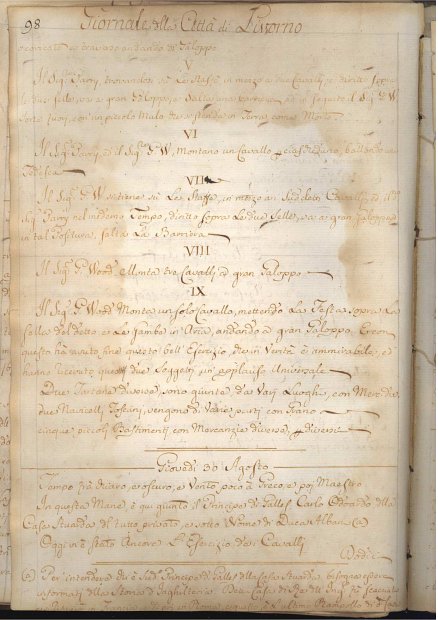 98 Giornale della Città di Livorno
di Galoppo
V
Il Sig.r Parry trovandosi su le Staffe in mezzo a due Cavalli, e diritto sopra
le due selle, va a gran Galoppo, e salta una barriera, ed in seguito il Sig.r W
VI
Il Sig.r Parry, ed il Sig.r P. W. montano un Cavallo per ciascheduno, ballando
VII
Il Sig.r P. W. su Le Staffe, in mezzo ai Suddetti Cavalli, ed il
Sig.r Parry nel medesimo Tempo, diritto sopra Le due Selle, va a gran Galoppo, ed
in tal Positura, salta La Barriera
VIII
Il Sig.r P. Wood tre Cavalli a gran Galoppo
IX
Il Sig.r P. Wood Monta un solo Cavallo, mettendo La Testa sopra La
Sella del detto, e Le Gambe in Aria, andando a gran Galoppo, E con
questo hà avuto fine questo bell' Esercizio, che in Verità è ammirabile, e
hanno ricevuto questi due Soggetti un' applauso Universale
Due Tartane diverse, sono giunte da Vari Luoghi, con Mercanzie
due Navicelli Toscani, vengono di Varie parti con Grano
cinque piccoli Bastimenti con Mercanzie diverse, per diversi
Giovedì 30 Agosto
Tempo frà chiaro, e oscuro, e Vento poco a Greco e poi Maestro
In questa Mane, è qui giunto il Principe di Galles Carlo Odoardo della
Casa Stuarda del tutto privato, e sotto Nome di Duca Alban (a)
Oggi vi è stato Ancora L' Esercizio dei Cavalli
(a) Per intendere chi è Sud.o Principe di Galles della Casa Stuarda, bisogna essere
informati della Storia d'Inghilterra